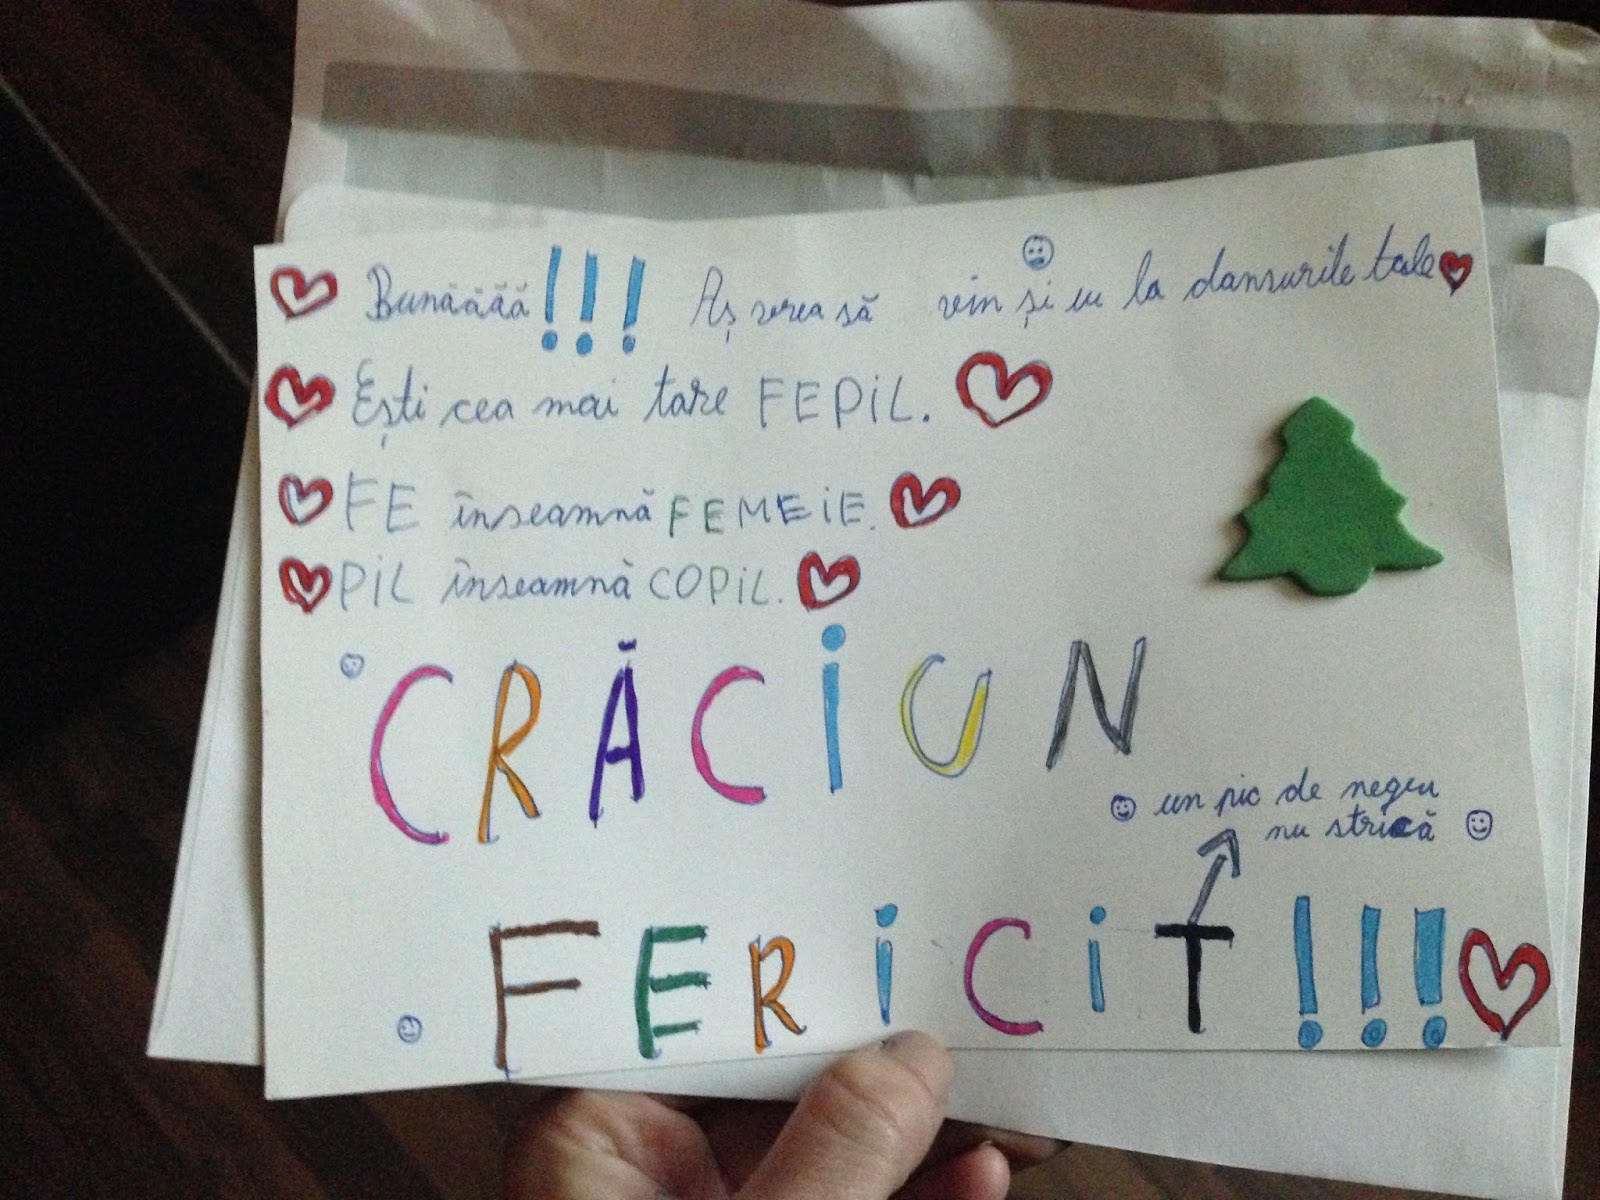 Bunăăăă!!! Aș vrea să vin și eu la dansurile tale
Ești cea mai tare FEPiL.
FE înseamnă FEMEiE.
PiL înseamnă COPiL.
CRĂCiUN
un pic de negru
nu strică
FERiCiT!!!